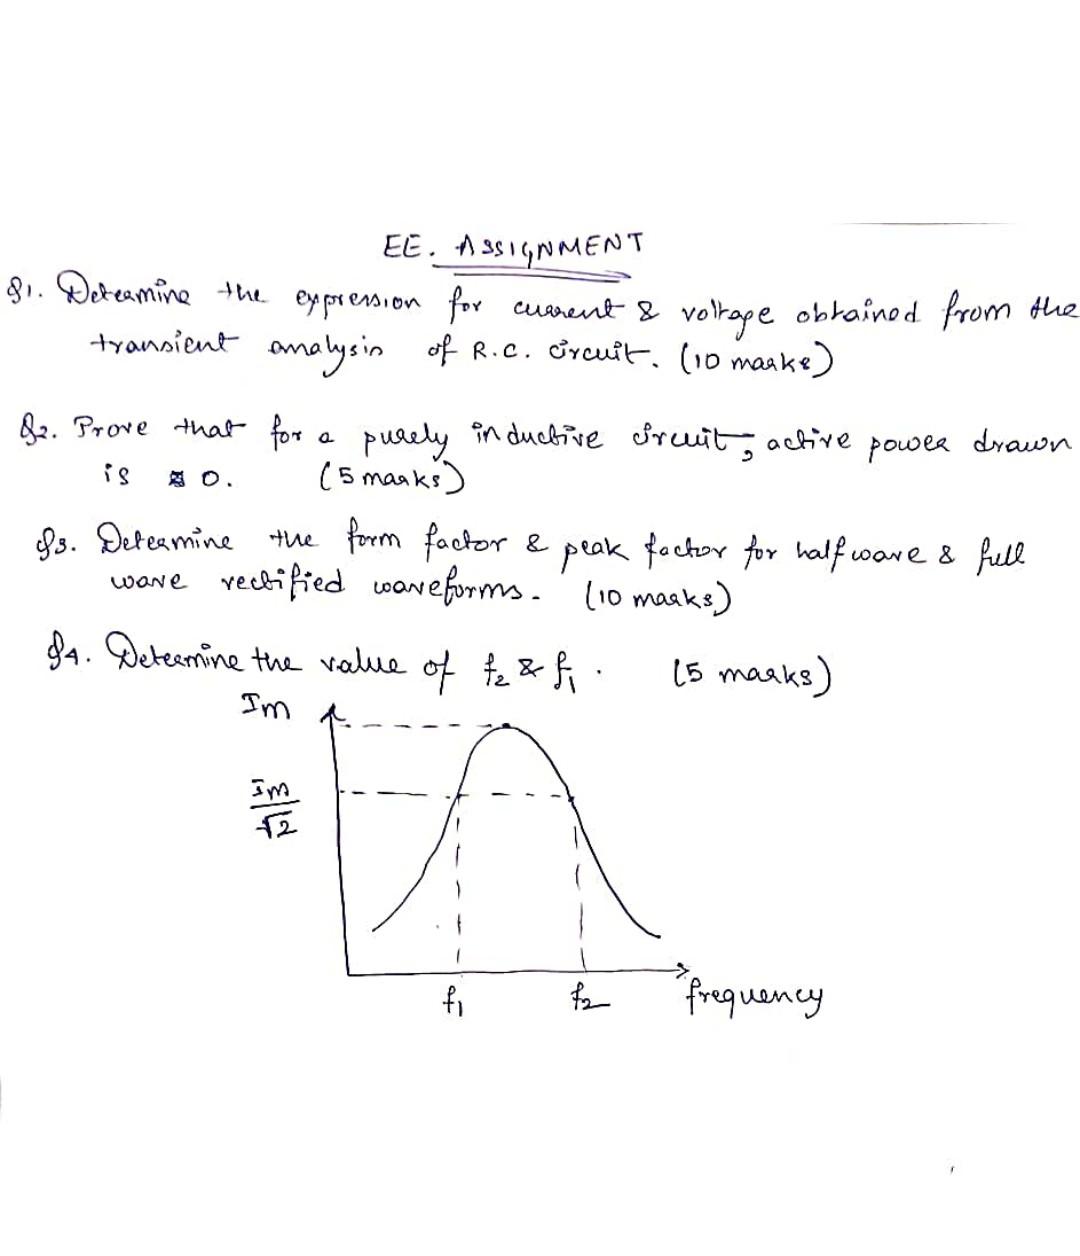 EE. ASSIGNMENT
Q1. Determine the expression for current & voltage obtained from the
transient analysis of R.C. circuit. (10 marks)
Q2. Prove that for a purely inductive circuit, active power drawn
is 0. (5 marks)
Q3. Determine the form factor & peak factor for half wave & full
wave rectified waveforms. (10 marks)
Q4. Determine the value of f₂ & f₁. (5 marks)
Im
Im
√2
f₁ f₂ frequency